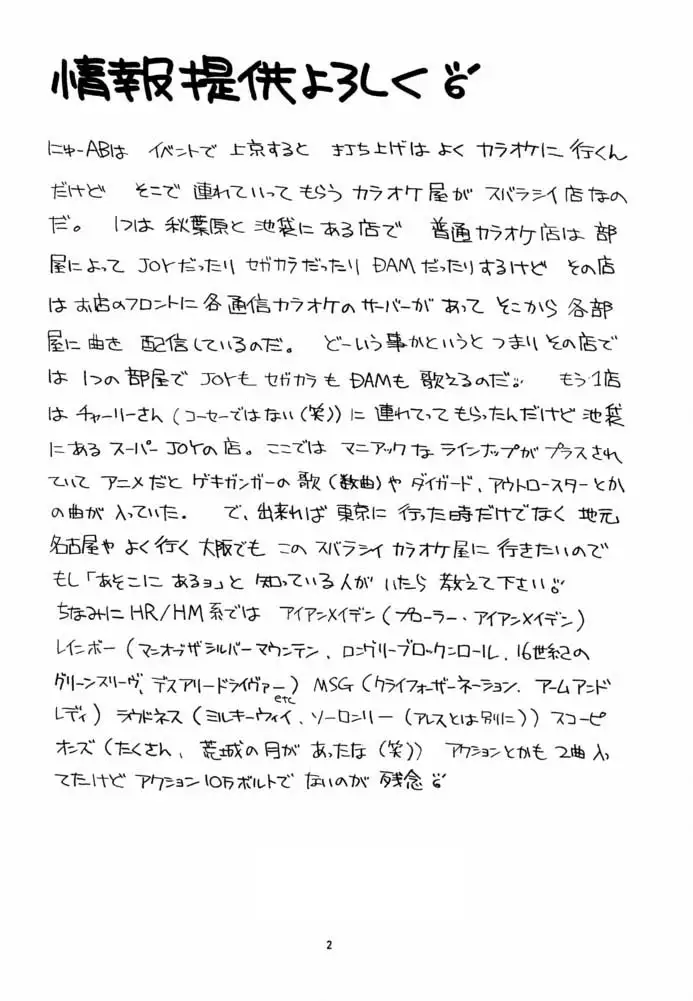 情報提供よろしく
にゅーABは イベントで 上京すると 打ち上げは よく カラオケに 行くん
だけど そこで 連れていって もらう カラオケ屋が スバラシイ店なの
だ。 1つは 秋葉原と 池袋に ある店で 普通カラオケ店は 部
屋によって JOYだったり セガカラだったり DAMだったりするけど その店
は お店のフロントに 各通信カラオケの サーバーが あって そこから 各部
屋に 曲を 配信しているのだ。 どーいう事かというと つまり その店で
は 1つの 部屋で JOYも セガカラも DAMも 歌えるのだ。 もう1店
は チャーリーさん(コーセーではない(笑))に 連れてって もらったんだけど 池袋
にある スーパーJOYの店。ここでは マニアックな ラインナップが プラスされ
ていて アニメだと ゲキガンガーの 歌(数曲)や ダイガード、アウトロースターとか
の曲が 入っていた。 で、出来れば 東京に 行った時だけでなく 地元
名古屋や よく行く 大阪でも この スバラシイ カラオケ屋に 行きたいので
もし「あそこに あるョ」と 知っている人が いたら 教えて下さい
ちなみに HR/HM系では アイアンメイデン(プローラー、アイアンメイデン)
レインボー(マンオブザシルバーマウンテン、ロングリーブロックンロール、16世紀の
グリーンスリーヴ、デスアリードライヴァーetc) MSG(クライフォーザネーション、アームアンド
レディ) ラウドネス(ミルキーウェイ、ソーロンリー(アレスとは別に)) スコーピ
オンズ(たくさん、荒城の月が あったな(笑)) アクションとかも 2曲入っ
てたけど アクション10万ボルトで ないのが 残念
2